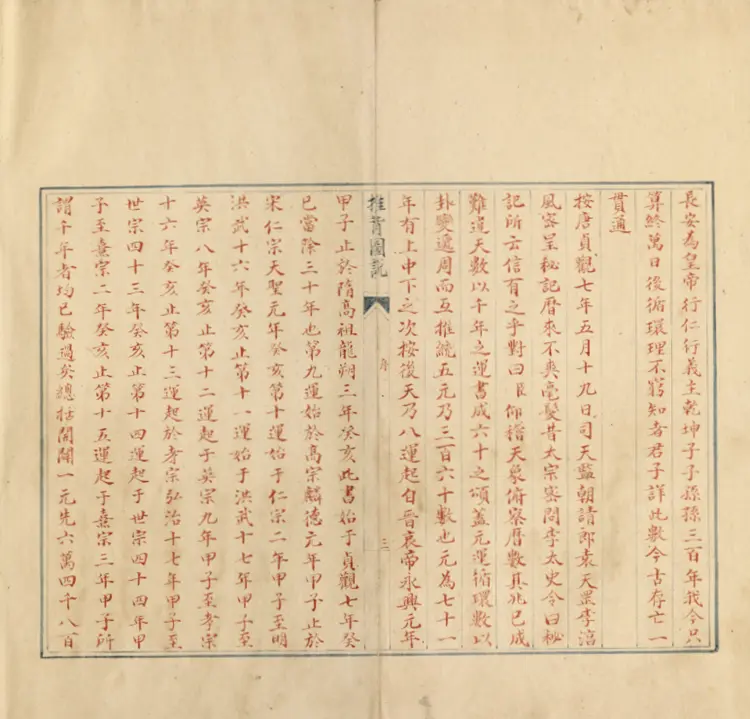 長安為皇帝行仁行義主乾坤子子孫孫三百年我今只
算終萬日後循環理不窮知者君子詳此數今古存亡一
貫通
按唐貞觀七年五月十九日司天監朝請郎袁天罡李淳
風密呈秘記曆來不爽毫髮昔太宗密問李太史令曰秘
記所云信有之乎對曰臣仰稽天象俯察曆數其兆已成
難逭天數以千年之運書成六十之頌蓋元運循環數以
卦變遞周而互推統五元乃三百六十數也元為七十一
年有上中下之次按後天乃八運起自晉哀帝永興元年
推背圖說
序
三
甲子止於隋高祖龍朔三年癸亥此書始于貞觀七年癸
巳當除三十年也第九運始於高宗麟德元年甲子止於
宋仁宗天聖元年癸亥第十運始于仁宗二年甲子至明
洪武十六年癸亥止第十一運始于洪武十七年甲子至
英宗八年癸亥止第十二運起于英宗九年甲子至孝宗
十六年癸亥止第十三運起於孝宗弘治十七年甲子至
世宗四十三年癸亥止第十四運起于世宗四十四年甲
子至熹宗二年癸亥止第十五運起于熹宗三年甲子所
謂千年者均已驗過矣總括開闢一元先六萬四千八百